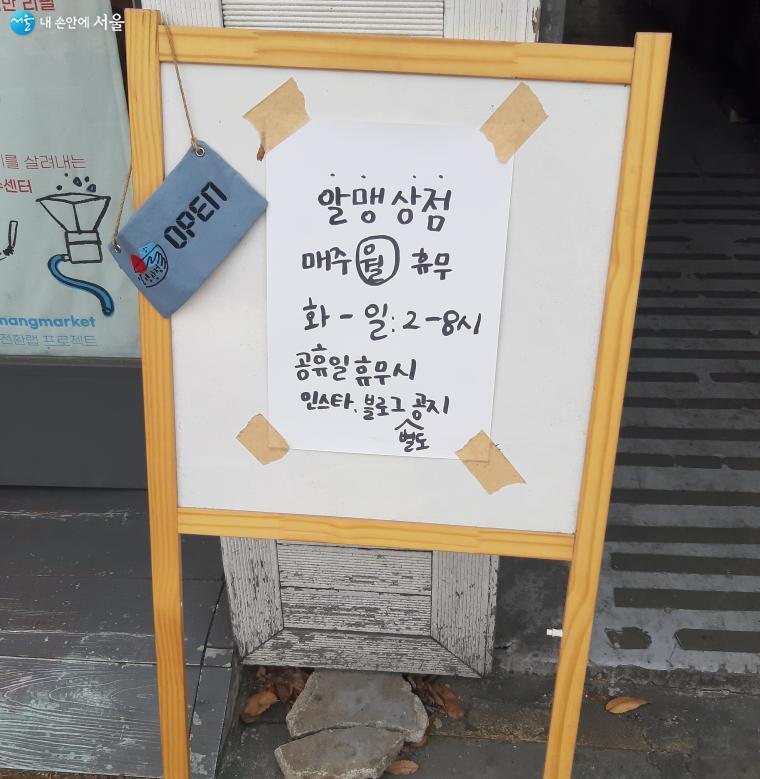 내 손안에 서울
를 살려내는
센터
OPEN
알맹상점
매주 월 휴무
화 - 일: 2-8시
공휴일 휴무시
인스타. 블로그 별도 공지
mangmarket
전환랩 프로젝트